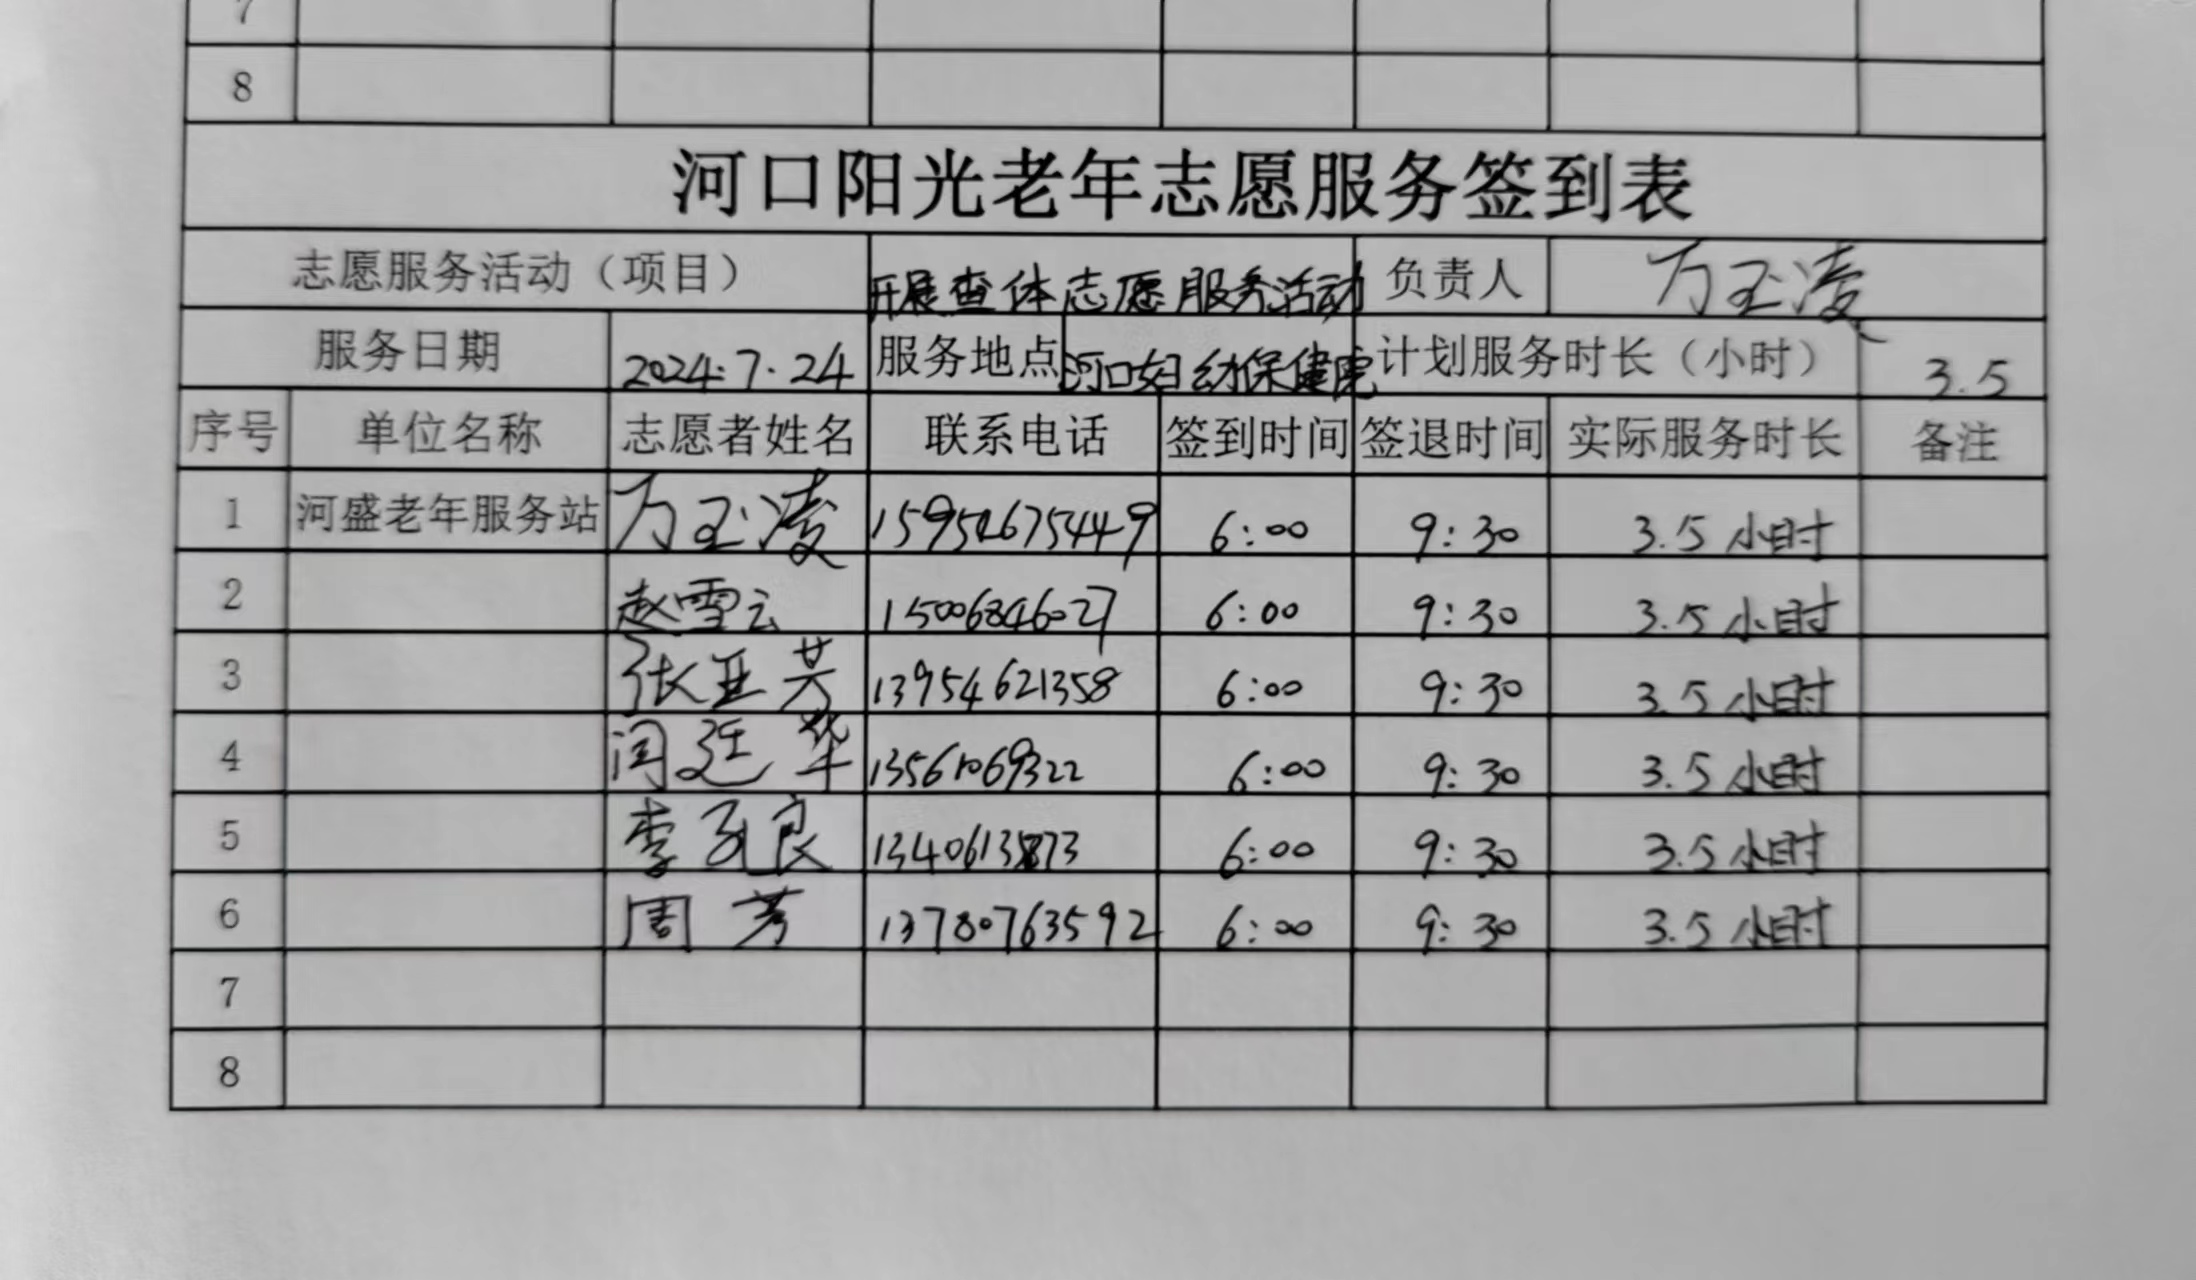 7
8
河口阳光老年志愿服务签到表
志愿服务活动（项目） 开展查体志愿服务活动 负责人 万玉凌
服务日期 2024.7.24 服务地点 河口妇幼保健院 计划服务时长（小时） 3.5
序号 单位名称 志愿者姓名 联系电话 签到时间 签退时间 实际服务时长 备注
1 河盛老年服务站 万玉凌 15954675449 6:00 9:30 3.5小时
2 赵雪云 15006846027 6:00 9:30 3.5小时
3 张亚芳 13954621358 6:00 9:30 3.5小时
4 闫廷华 13561069322 6:00 9:30 3.5小时
5 李孔良 6:00 9:30 3.5小时
6 周芳 13780763592 6:00 9:30 3.5小时
7
8